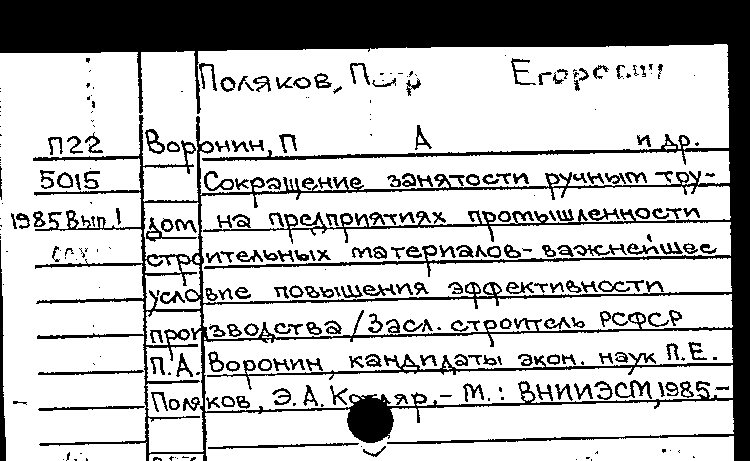 Поляков, Петр Егорович
П22 Воронин, П А и др.
5015 Сокращение занятости ручным тру-
1985 Вып.1 дом на предприятиях промышленности
строительных материалов - важнейшее
условие повышения эффективности
производства / Засл. строитель РСФСР
П.А. Воронин, кандидаты экон. наук П.Е.
Поляков, Э.А. Котляр. - М. : ВНИИЭСМ, 1985. -